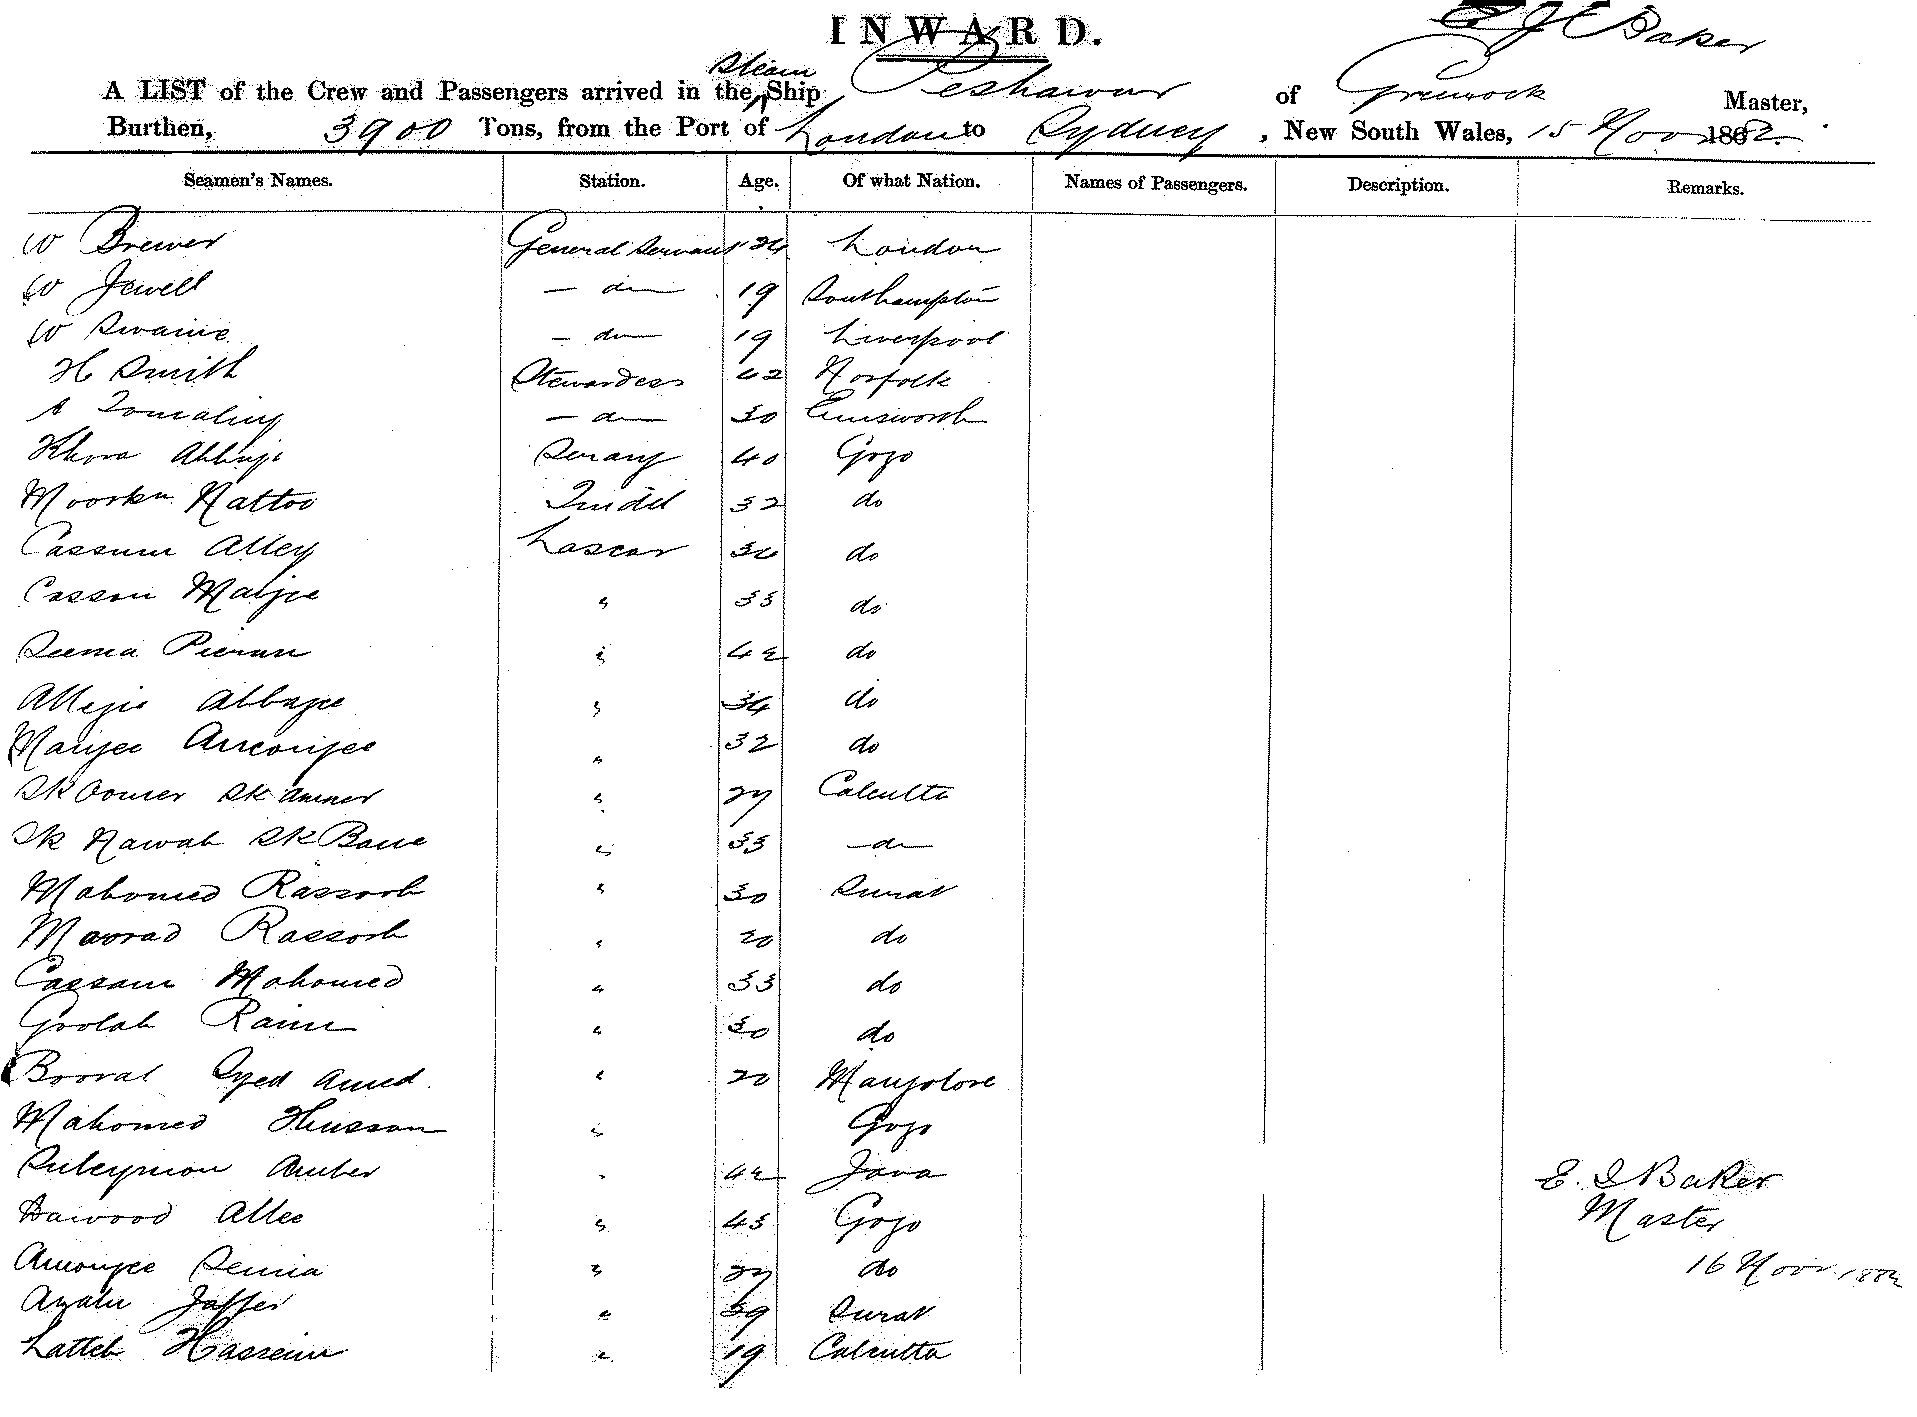 INWARD.
E J Baker
A LIST of the Crew and Passengers arrived in the Steam Ship Peshawur of Greenock Master,
Burthen, 3900 Tons, from the Port of London to Sydney, New South Wales, 15 Nov 1882
Seamen's Names. Station. Age. Of what Nation. Names of Passengers. Description. Remarks.
W Brewer General Servant 24 London
W Jewell do 19 Southampton
W Swaine do 19 Liverpool
H Smith Stewardess 42 Norfolk
do 30 Emsworth
Abbaji Serang 40 Gogo
Nattoo Tindel 32 do
Cassum Alley Lascar 36 do
Cassum " 33 do
Seema Pierun " 42 do
Abbajee " 34 do
" 32 do
Sk Oomer Sk Ameer " 27 Calcutta
Sk Nawab Sk " 33 do
Mahomed Rassoob " 30 Surat
Moorad Rassoob " 20 do
Cassam Mahomed " 33 do
Goolab " 30 do
Syed Amed " 20 Mangolore
Mahomed Hussan " Gogo
Suleymon Amber " 42 Java
Dawood Allee " 43 Gogo
Amonjee Semia " 27 do
Jaffer " 39 Surat
Latteb Hassein " 19 Calcutta
E. J Baker
Master
16 Nov 1882